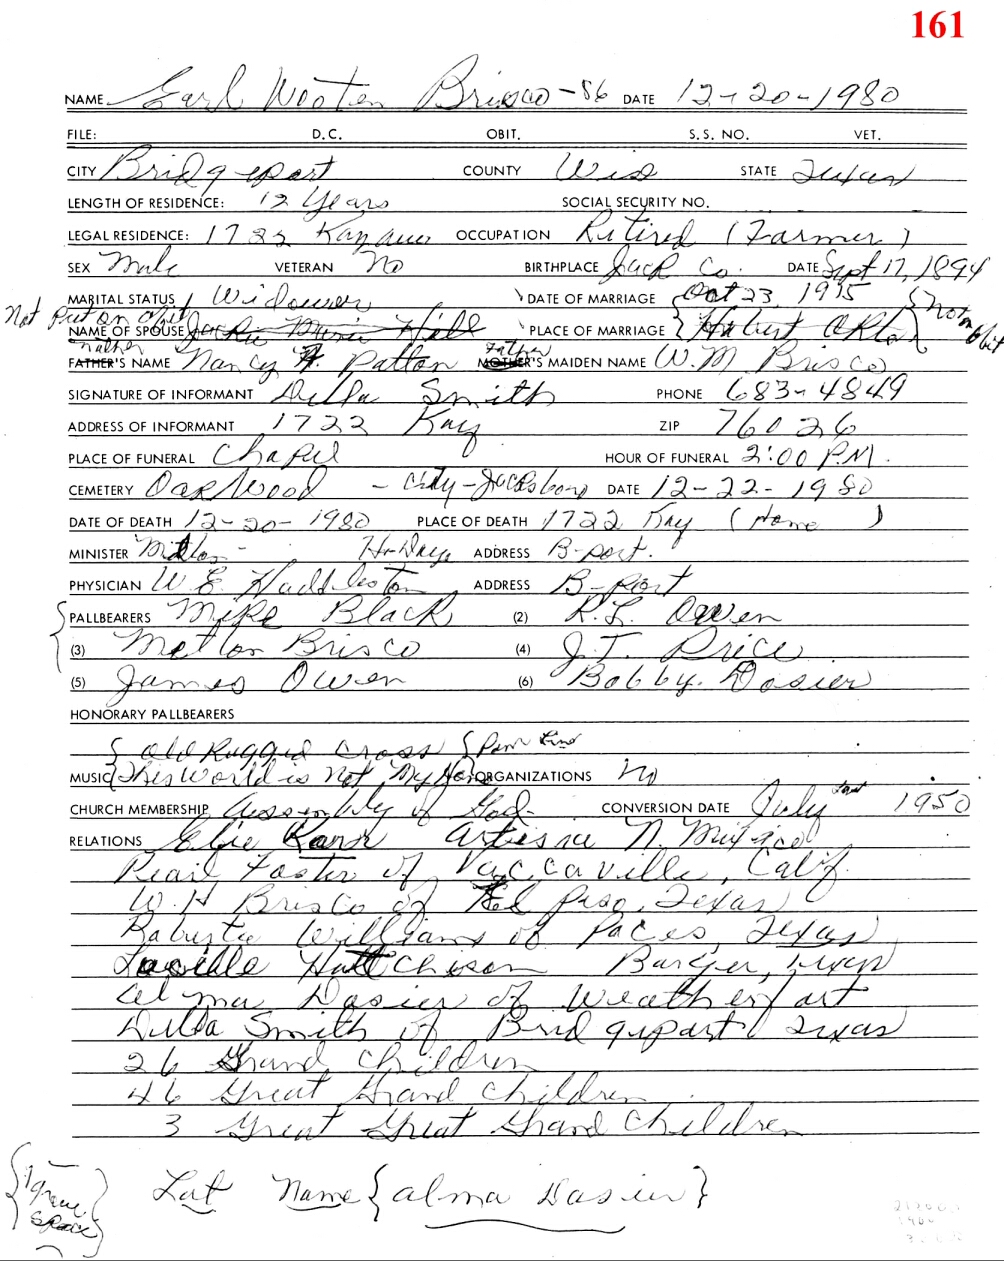 161
NAME Earl Wooten Brisco - 86 DATE 12-20-1980
FILE: D.C. OBIT. S.S. NO. VET.
CITY Bridgeport COUNTY Wise STATE Texas
LENGTH OF RESIDENCE: 12 Years SOCIAL SECURITY NO.
LEGAL RESIDENCE: 1722 OCCUPATION Retired (Farmer)
SEX Male VETERAN No BIRTHPLACE Jack Co. DATE Sept 17, 1894
MARITAL STATUS Widower DATE OF MARRIAGE {Oct 23, 1915 {Not
Not Put on obit
NAME OF SPOUSE Marie Hill PLACE OF MARRIAGE { on obit
mother Father
FATHER'S NAME Nancy A. Patton MOTHER'S MAIDEN NAME W.M Brisco
SIGNATURE OF INFORMANT Della Smith PHONE 683-4849
ADDRESS OF INFORMANT 1722 Kay ZIP 76026
PLACE OF FUNERAL Chapel HOUR OF FUNERAL 2:00 P.M.
CEMETERY Oakwood - City - Jacksboro DATE 12-22-1980
DATE OF DEATH 12-20-1980 PLACE OF DEATH 1722 Kay (Home)
MINISTER ADDRESS B-port.
PHYSICIAN W E Huddleston ADDRESS B-port
PALLBEARERS Mike Black (2) R.L. Owen
(3) Brisco (4) J.T. Price
(5) James Owen (6) Bobby Dosier
HONORARY PALLBEARERS
{ Old Rugged Cross {
MUSIC { This World is Not My Home ORGANIZATIONS No
CHURCH MEMBERSHIP Assembly of God CONVERSION DATE July 1950
RELATIONS Artesia N. Mexico
Pearl Foster of Vaccaville, Calif.
W.H Brisco of El Paso, Texas
Williams of Texas
Lucille Hutcheson Texas
Alma Dosier of Weatherfort
Della Smith of Bridgeport Texas
26 Grand Children
46 Great Grand Children
3 Great Great Grand Children
{1 grave space}
Lot Name {Alma Dosier}